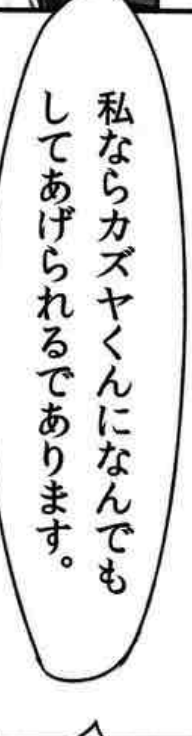 私ならカズヤくんになんでも
してあげられるであります。